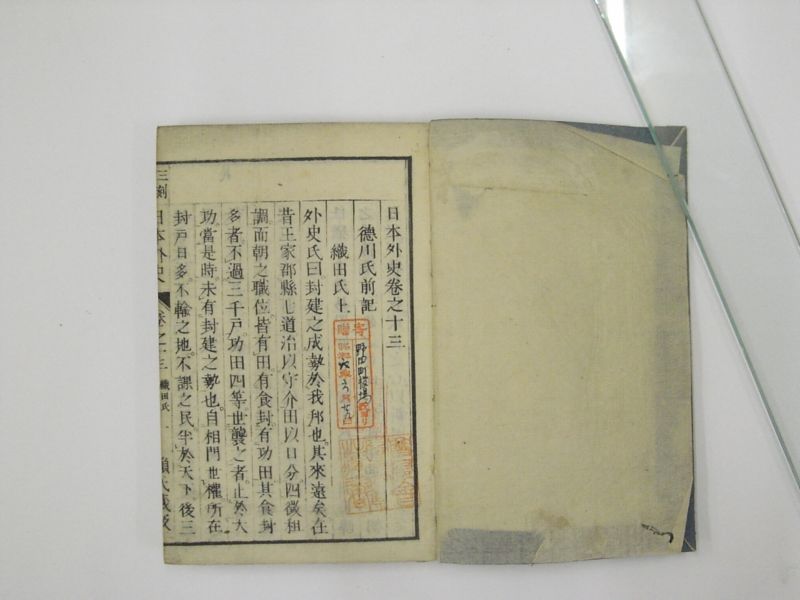 日本外史卷之十三
德川氏前記
織田氏上
外史氏曰封建之成勢於我邦也其來遠矣在
昔王家郡縣七道治以守介田以口分四徵租
調而朝之職位皆有田有食封有功田其食封
多者不過三千戸功田四等世襲之者止於大
功當是時未有封建之勢也自相門世權所在
封戸日多不輸之地不課之民半於天下後三
三刻 日本外史 卷之十三 織田氏 一
寄贈
野田町役場